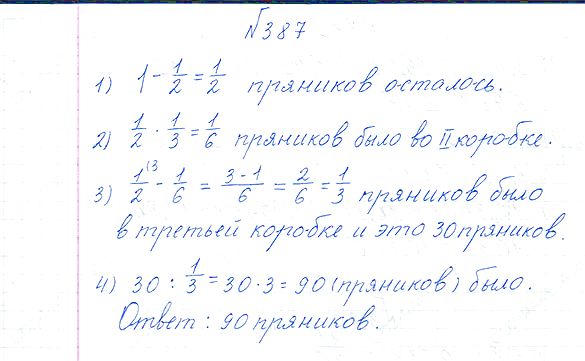 №387
1) 1 - 1/2 = 1/2 пряников осталось.
2) 1/2 · 1/3 = 1/6 пряников было во II коробке.
3) 1/2 (3 - 1/6 = 3-1/6 = 2/6 = 1/3 пряников было
в третьей коробке и это 30 пряников.
4) 30 : 1/3 = 30·3 = 90 (пряников) было.
Ответ: 90 пряников.